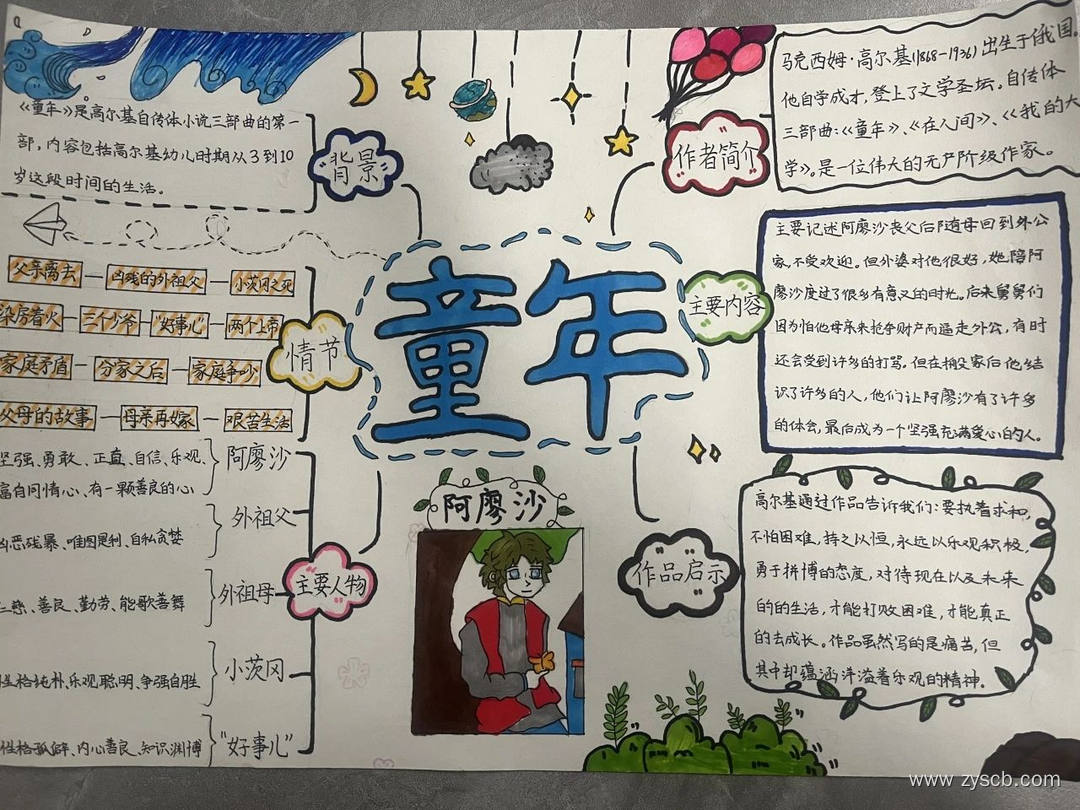 《童年》是高尔基自传体小说三部曲的第一
部，内容包括高尔基幼儿时期从3到10
岁这段时间的生活。
背景
作者简介
马克西姆·高尔基(1868-1936)出生于俄国。
他自学成才，登上了文学圣坛。自传体
三部曲:《童年》、《在人间》、《我的大
学》。是一位伟大的无产阶级作家。
童年
主要内容
主要记述阿廖沙丧父后随母回到外公
家，不受欢迎。但外婆对他很好，她陪阿
廖沙度过了很多有意义的时光。后来舅舅们
因为怕他母亲来抢夺财产而逼走外公，有时
还会受到许多的打骂。但在搬家后他结
识了许多的人，他们让阿廖沙有了许多
的体会，最后成为一个坚强充满爱心的人。
情节
父亲离去—凶残的外祖父—小茨冈之死
染房着火—三个少爷—"好事儿"—两个上帝
家庭矛盾—分家之后—家庭争吵
父母的故事—母亲再嫁—艰苦生活
主要人物
坚强、勇敢、正直、自信、乐观、
富有同情心、有一颗善良的心
阿廖沙
凶恶残暴、唯图是利、自私贪婪
外祖父
慈、善良、勤劳、能歌善舞
外祖母
性格纯朴、乐观聪明、争强自胜
小茨冈
性格孤僻、内心善良、知识渊博
"好事儿"
阿廖沙
作品启示
高尔基通过作品告诉我们:要执着求和，
不怕困难，持之以恒，永远以乐观积极，
勇于拼博的态度，对待现在以及未来
的的生活，才能打败困难，才能真正
的去成长。作品虽然写的是痛苦，但
其中却蕴涵洋溢着乐观的精神。
www.zyscb.com